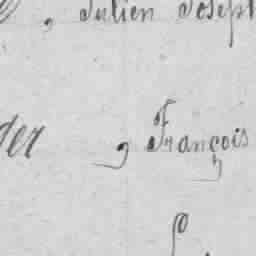 , Julien Joseph
der , François